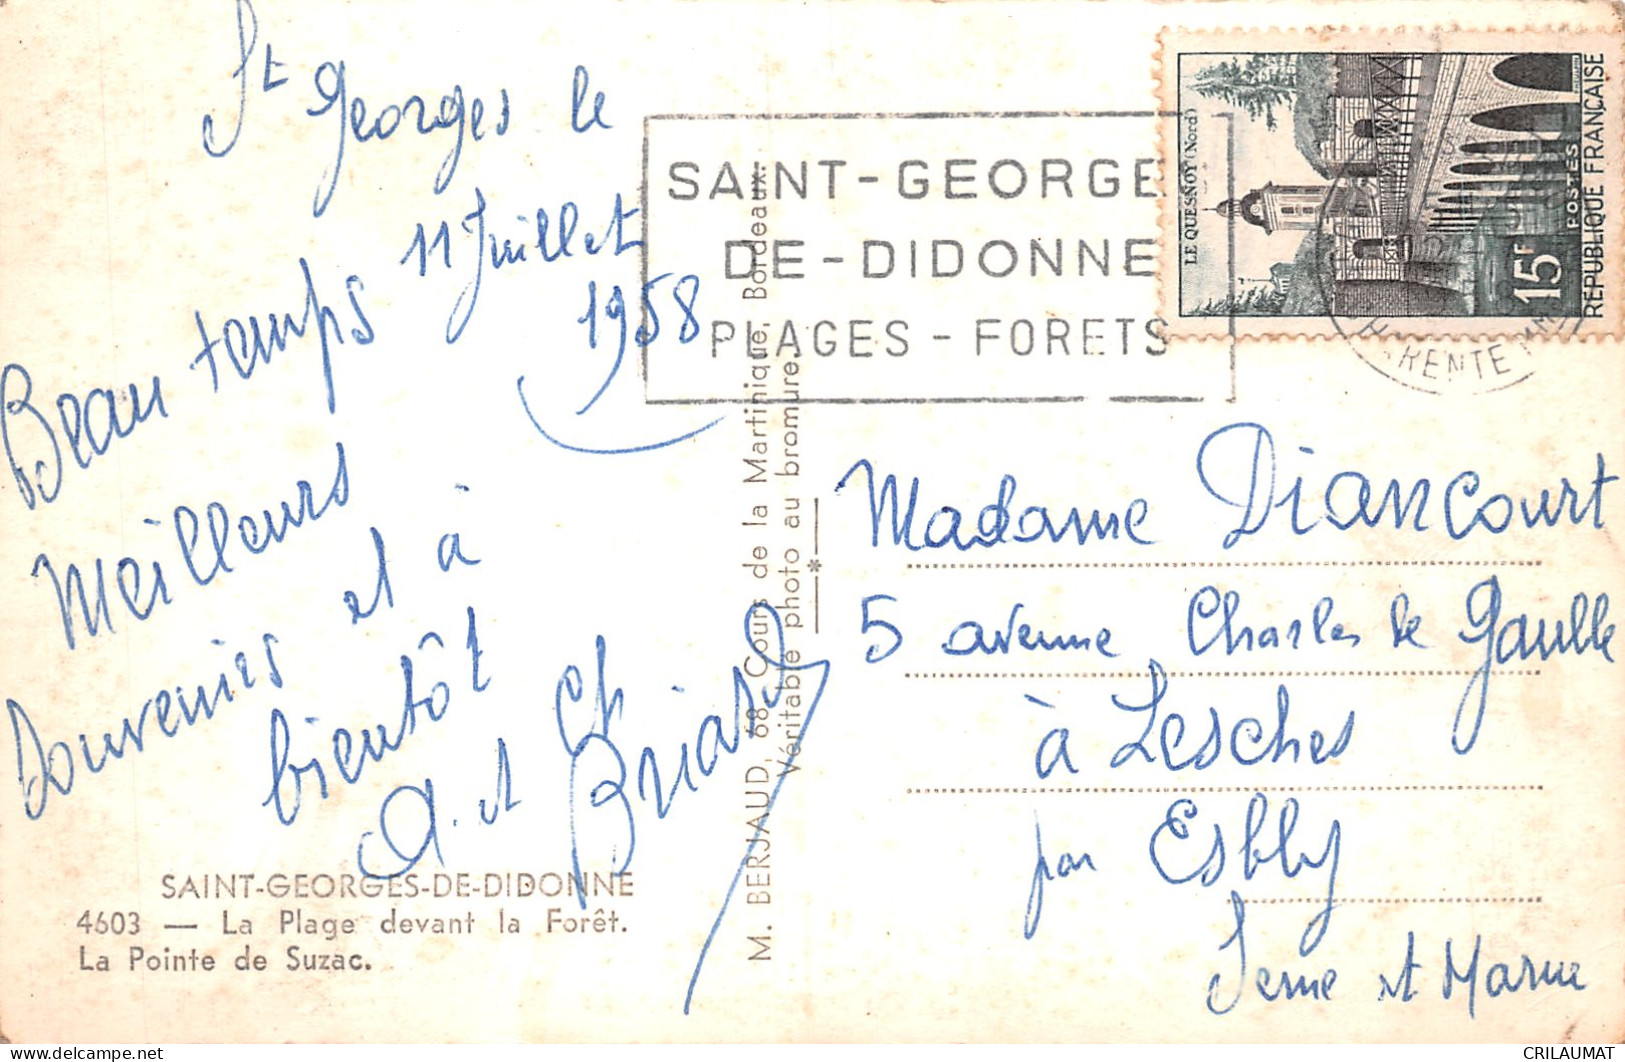 St Georges le
11 Juillet
1958
Beau temps
Meilleurs
Souvenirs et à
bientôt
A. et Ch Briard
SAINT-GEORGES-DE-DIDONNE
4603 — La Plage devant la Forêt.
La Pointe de Suzac.
M. BERJAUD, 68, Cours de la Martinique, Bordeaux.
Véritable photo au bromure.
SAINT-GEORGE
DE-DIDONNE
PLAGES - FORETS
LE QUESNOY (Nord)
15F
POSTES
REPUBLIQUE FRANÇAISE
Madame Diancourt
5 avenue Charles de Gaulle
à Lesches
par Esbly
Seine et Marne
CRILAUMAT
delcampe.net